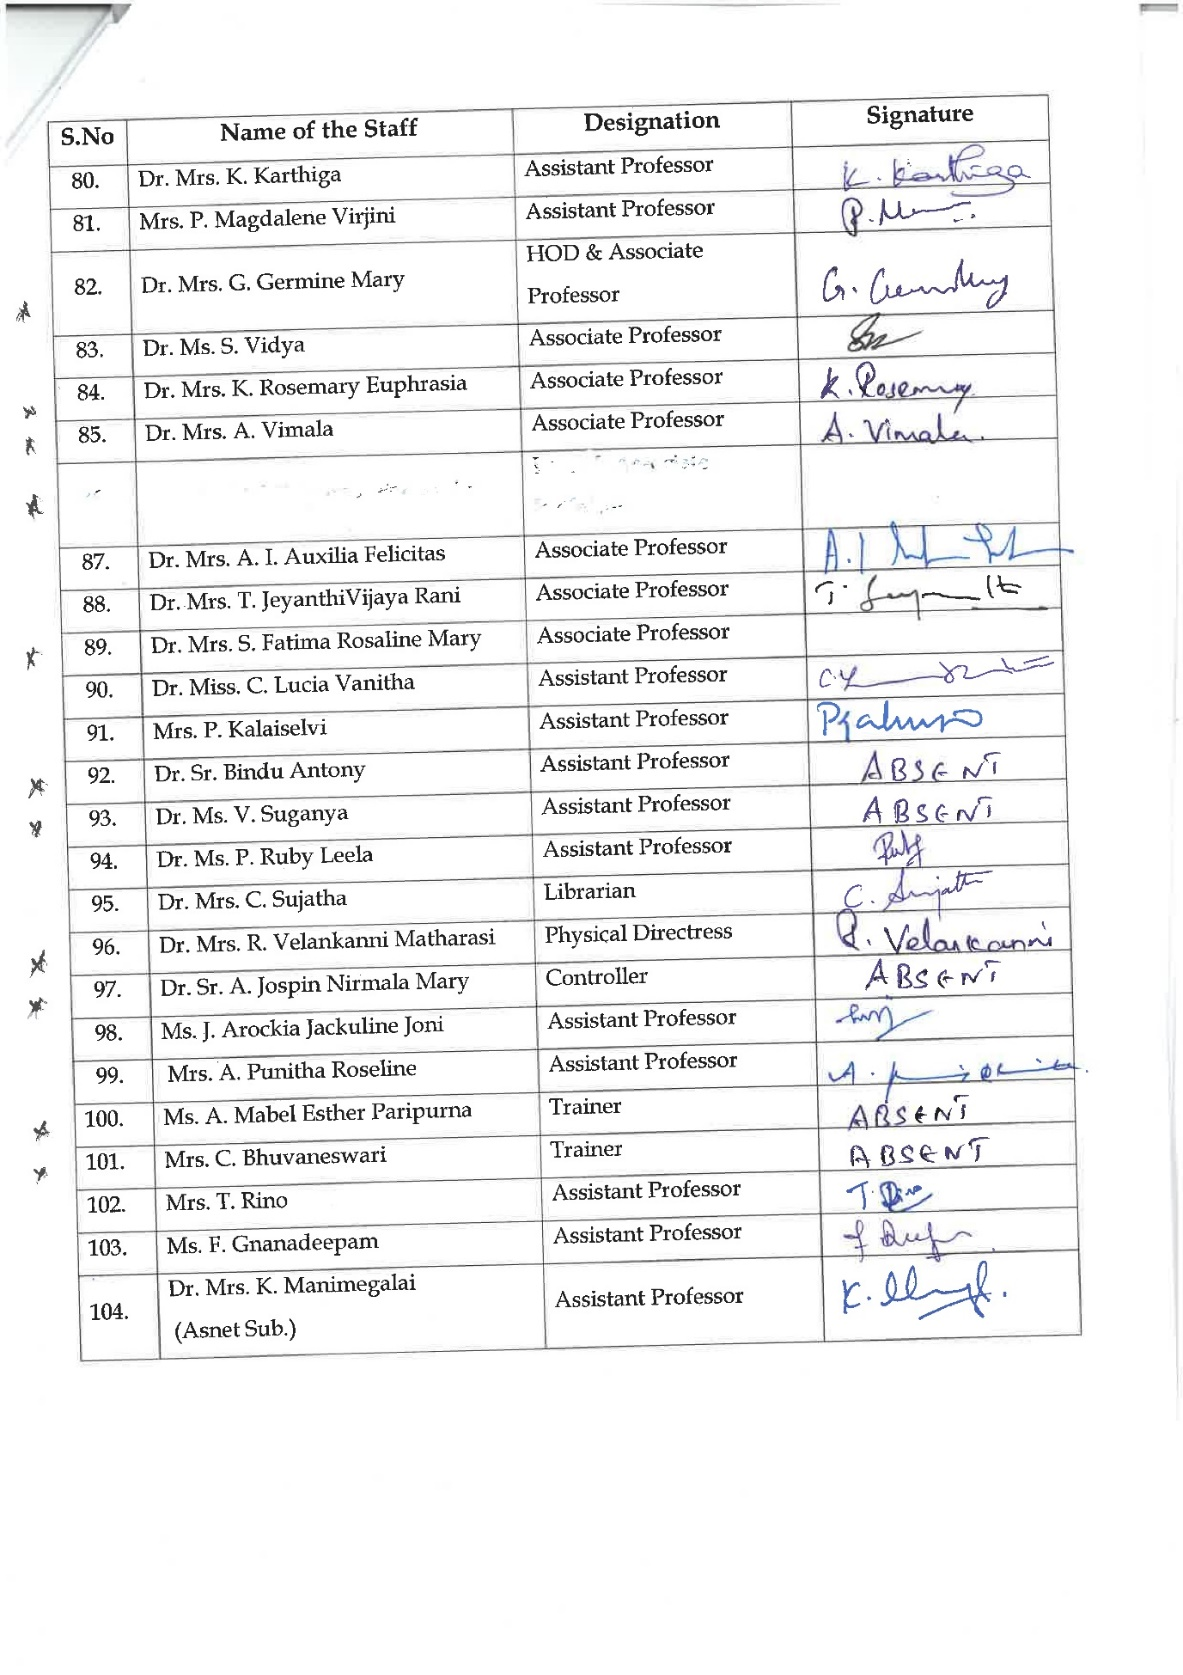 S.No Name of the Staff Designation Signature
80. Dr. Mrs. K. Karthiga Assistant Professor K. Karthiga
81. Mrs. P. Magdalene Virjini Assistant Professor
82. Dr. Mrs. G. Germine Mary HOD & Associate
Professor
83. Dr. Ms. S. Vidya Associate Professor
84. Dr. Mrs. K. Rosemary Euphrasia Associate Professor K. Rosemary
85. Dr. Mrs. A. Vimala Associate Professor A. Vimala.
87. Dr. Mrs. A. I. Auxilia Felicitas Associate Professor
88. Dr. Mrs. T. JeyanthiVijaya Rani Associate Professor
89. Dr. Mrs. S. Fatima Rosaline Mary Associate Professor
90. Dr. Miss. C. Lucia Vanitha Assistant Professor
91. Mrs. P. Kalaiselvi Assistant Professor
92. Dr. Sr. Bindu Antony Assistant Professor ABSENT
93. Dr. Ms. V. Suganya Assistant Professor ABSENT
94. Dr. Ms. P. Ruby Leela Assistant Professor
95. Dr. Mrs. C. Sujatha Librarian C. Sujatha
96. Dr. Mrs. R. Velankanni Matharasi Physical Directress R. Velankanni
97. Dr. Sr. A. Jospin Nirmala Mary Controller ABSENT
98. Ms. J. Arockia Jackuline Joni Assistant Professor
99. Mrs. A. Punitha Roseline Assistant Professor
100. Ms. A. Mabel Esther Paripurna Trainer ABSENT
101. Mrs. C. Bhuvaneswari Trainer ABSENT
102. Mrs. T. Rino Assistant Professor T. Rino
103. Ms. F. Gnanadeepam Assistant Professor
104. Dr. Mrs. K. Manimegalai Assistant Professor
(Asnet Sub.)